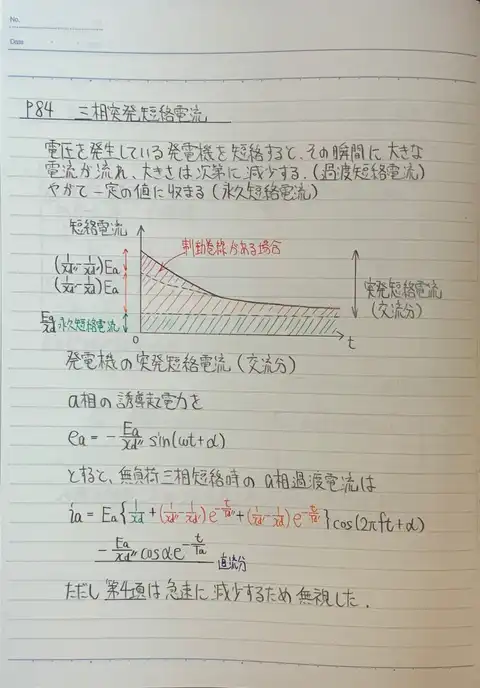 No.
Date
P84 三相突発短絡電流
電圧を発生している発電機を短絡すると、その瞬間に大きな
電流が流れ、大きさは次第に減少する.(過渡短絡電流)
やがて一定の値に収まる(永久短絡電流)
短絡電流
制動巻線がある場合
(1/xd''-1/xd')Ea
(1/xd'-1/xd)Ea
Ea/xd 永久短絡電流
突発短絡電流
(交流分)
0
t
発電機の突発短絡電流(交流分)
a相の誘導起電力を
ea = -Ea/xd'' sin(ωt+α)
とすると、無負荷三相短絡時のa相過渡電流は
ia = Ea{1/xd+(1/xd''-1/xd')e^-t/Td''+(1/xd'-1/xd)e^-t/Td'}cos(2πft+α)
-Ea/xd'' cosα・e^-t/Ta 直流分
ただし第4項は急速に減少するため無視した.